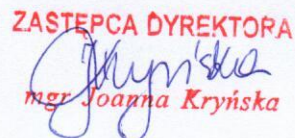 ZASTĘPCA DYREKTORA
JKryńska
mgr Joanna Kryńska